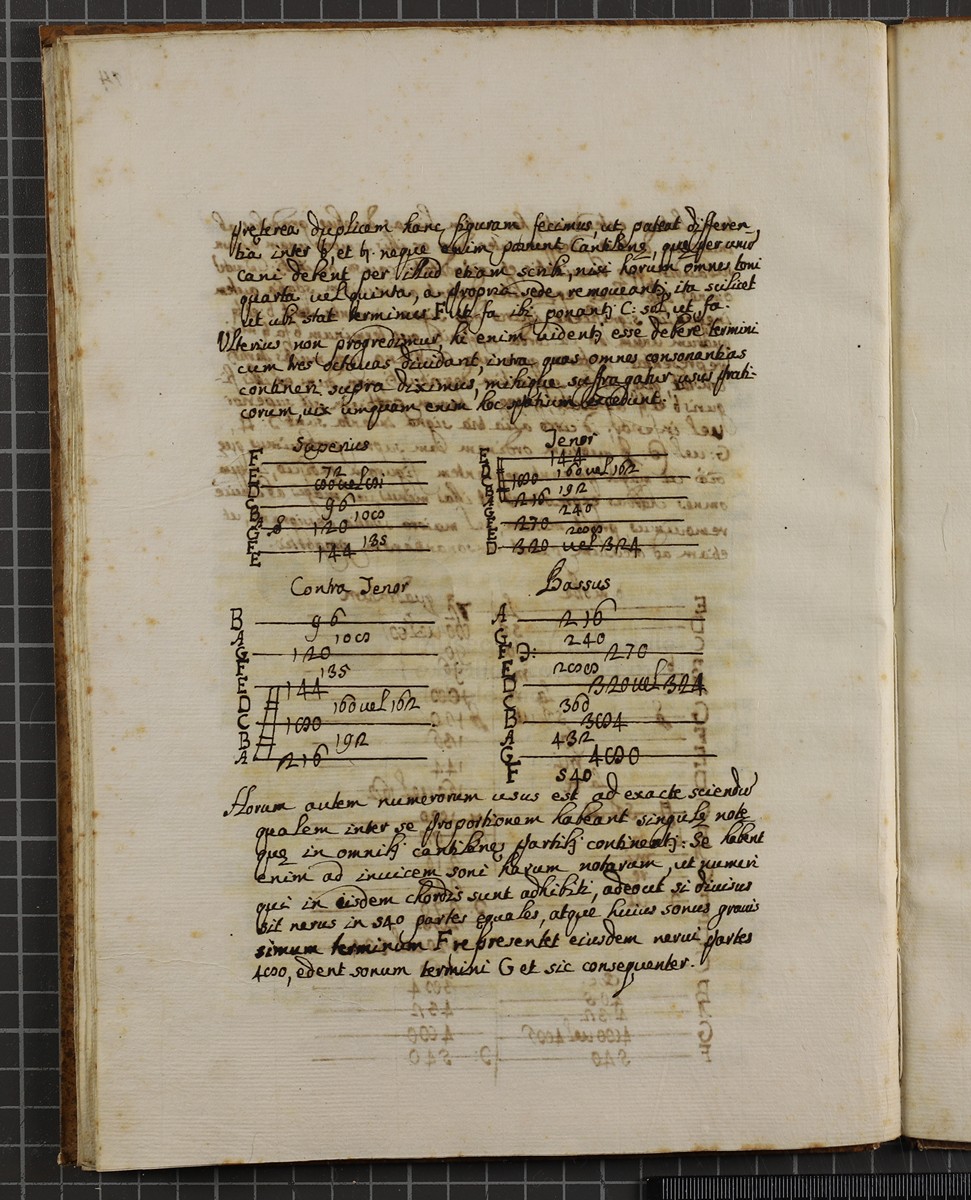 pręterea duplicem hanc figuram fecimus, ut pateat differen,
tia inter b, et ♮. neque enim possunt Cantilenę, quę per unū
cani debent per illud etiam scribi, nisi horum omnes toni
quarta vel quinta, a propria sede remoueantʒ, ita scilicet
ut ubi stat terminus F ut fa ibi ponantʒ C: sol, ut, fa.
Vlterius non progredimur, hi enim uidentʒ esse debere termini
cum tres octauas diuidant, intra quas omnes consonantias
contineri supra diximus, mihique suffragatur usus prati-
corum, uix umquam enim hoc spatium excedunt.
Superius
F
E 72
D 80 uel 81
C 96
B 108
A 8 120
G 135
F 144
E
Tenor
F 144
E 160 uel 162
D 180
C 192
B 216
A 240
G 270
F 288
E
D 320 uel 324
Contra Tenor
B 96
A 108
G 120
F 135
E 144
D 160 uel 162
C 180
B 192
A 216
Bassus
A 216
G 240
F Ɔ: 270
E 288
D 320 uel 324
C 360
B 384
A 432
G 480
F 540
Horum autem numerorum usus est ad exacte sciendū
qualem inter se proportionem habeant singulę notę
quę in omnibʒ cantilenę partibʒ continentʒ: Se habent
enim ad inuicem soni harum notarum, ut numeri
qui in eisdem chordis sunt adhibiti, adeout si diuisus
sit neruus in 540 partes ęquales, atque huius sonus grauis
simum terminum F representet eiusdem nerui partes
480, edent sonum termini G et sic consequenter.